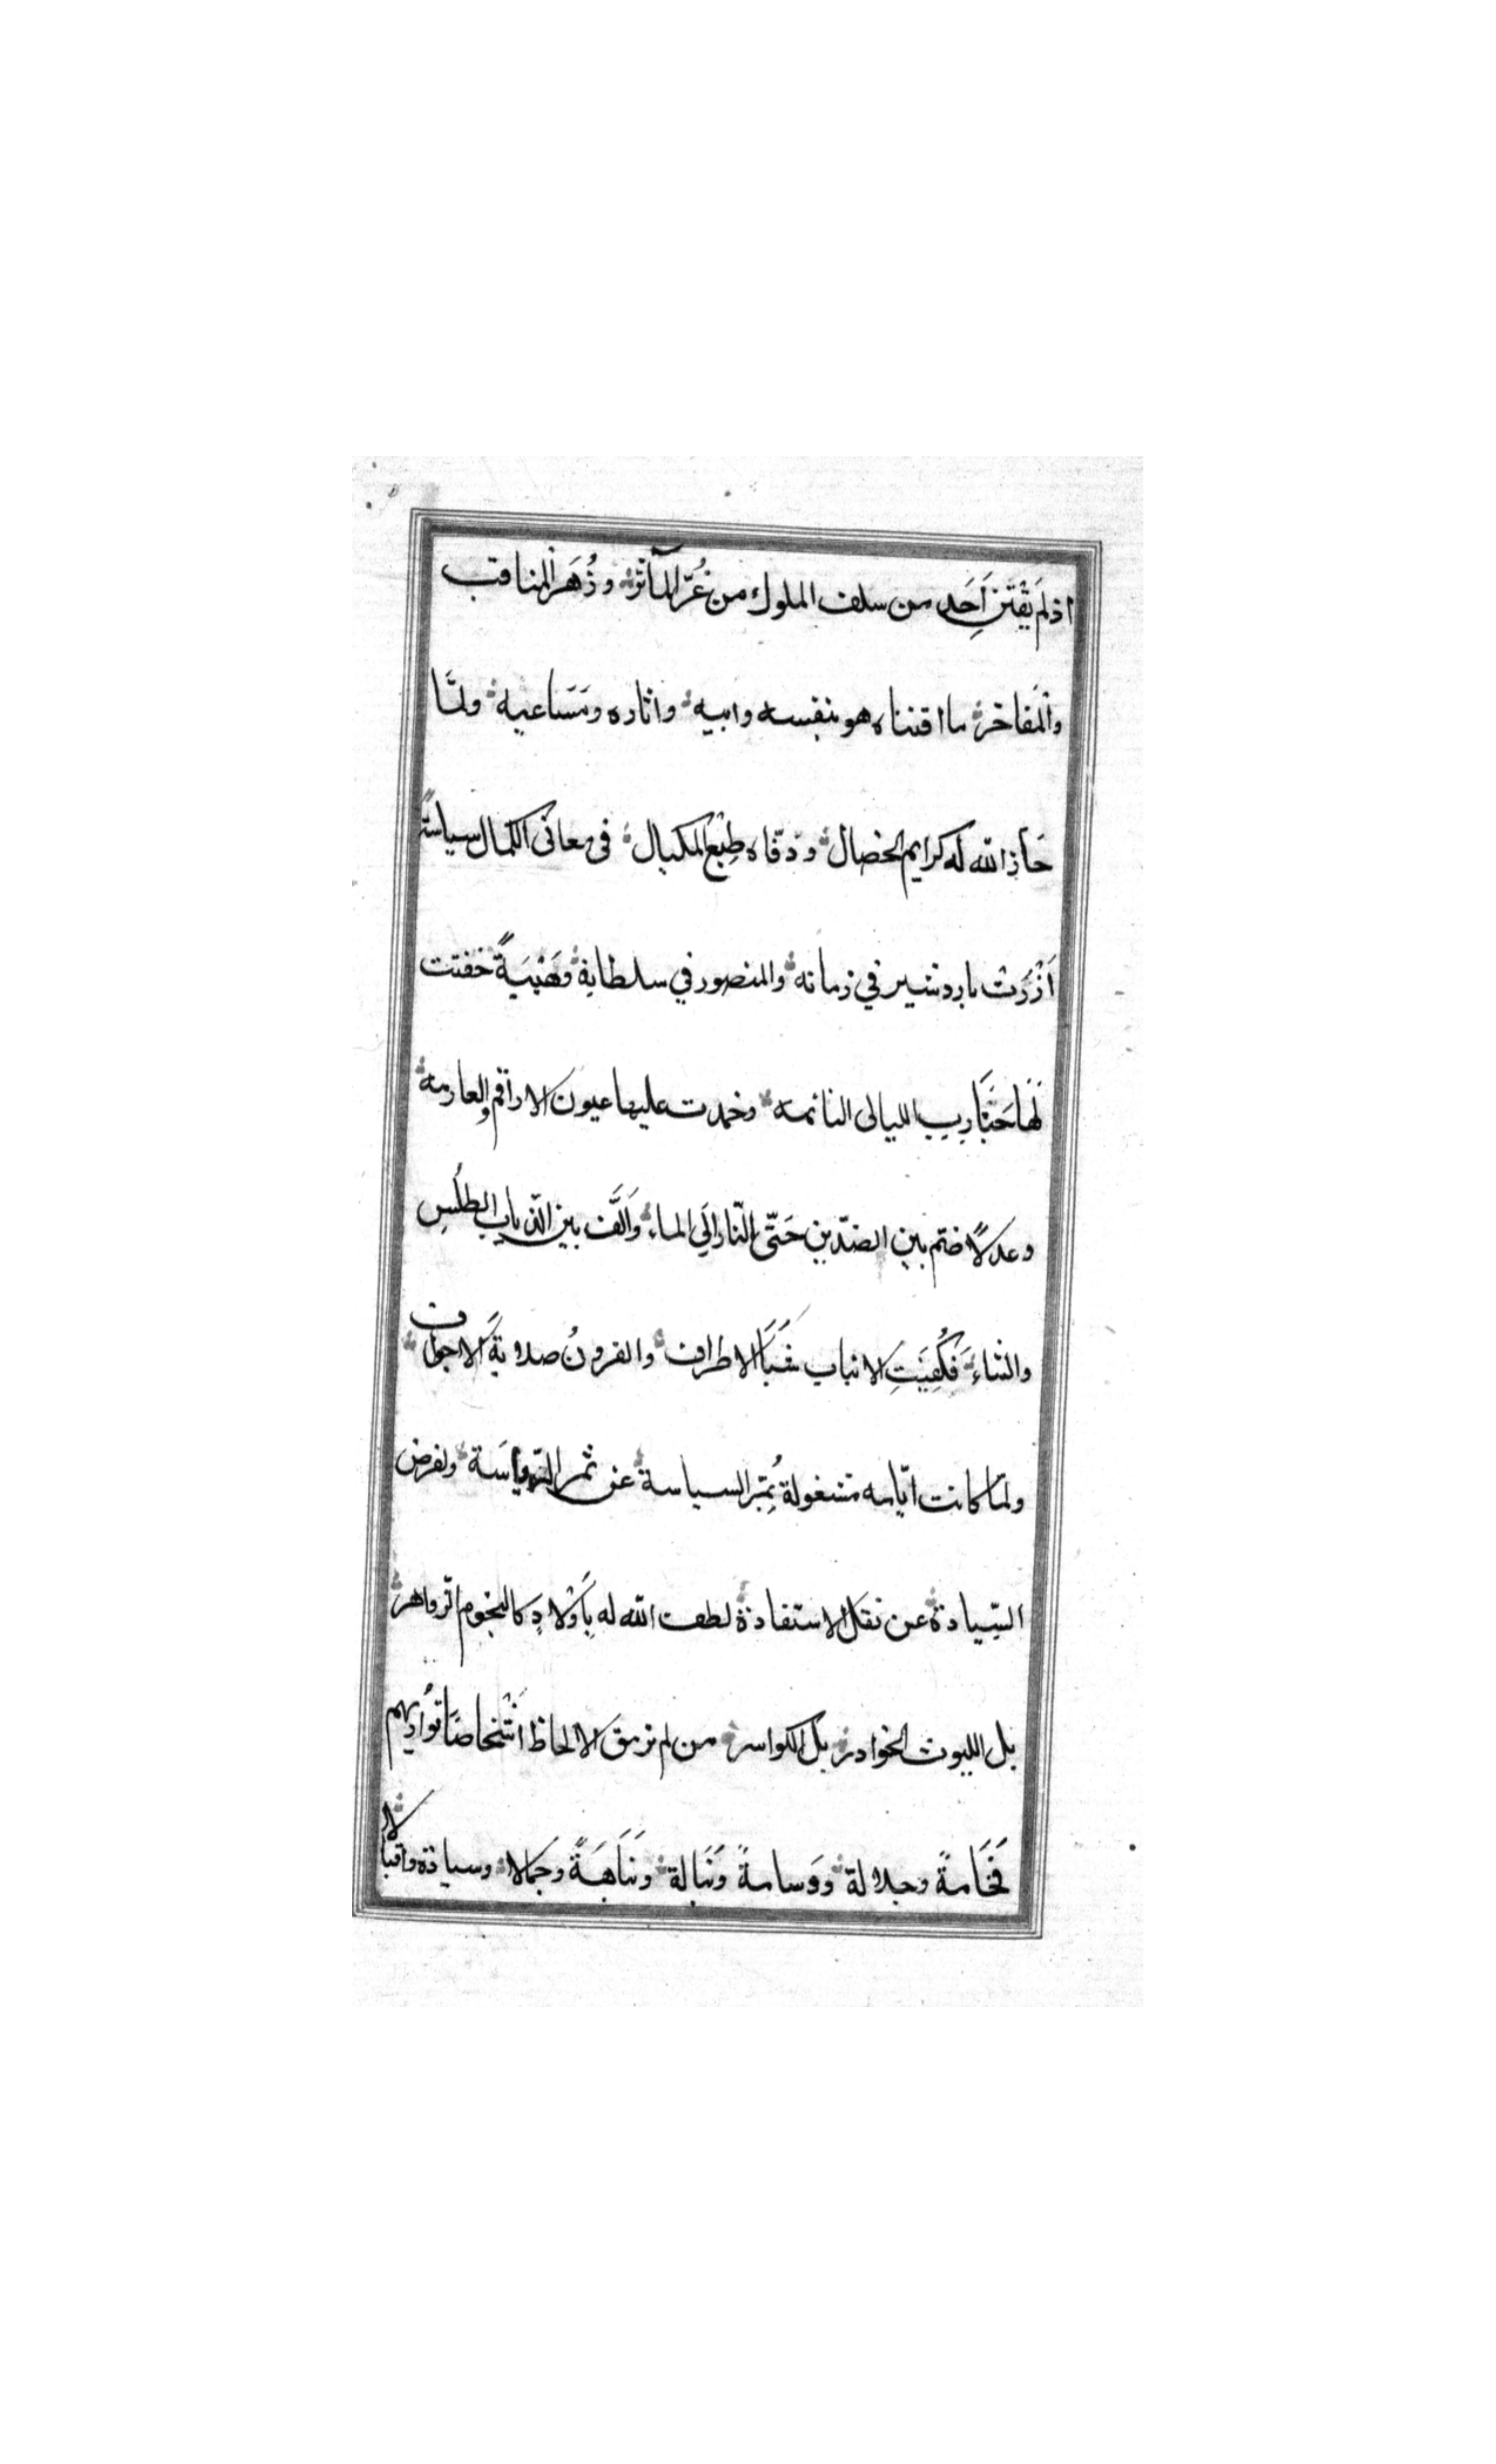 اذ لَم يَقْتَنِ اَحَد من سلف الملوك من غُرّ المآثر وزُهَر المناقب
والمَفاخر ما اقتناه هو بنفسه وابيه واثاره ومَسَاعيه ولمَّا
حَاز الله له كرايم الخصال ووفّاه طِبْعَ المكيال فى معانى الكمال سياسةً
اَزْرَتْ باردشير في زمانه والمنصور في سلطانه وهَيْبَةً خفتت
لَهَا جَنَادِب الليالى النائمه وخمدت عليها عيون الاراقم العارمه
وعدلاً ضم بين الضدّين حَتّى النّار الَى الماء وَاَلَّفَ بين الذياب الطُلسِ
والشاء فَكُفِيَتِ الانياب شَبَا الاطراف والقرونُ صلابةَ الاجواف
ولمّا كانت ايّامه مشغولة بُمّر السياسة عن ثمر الرياسة ولفرض
السِّيادة عن نفل الاستفادة لطف الله له بِاَوْلادٍ كالنجوم الزواهر
بل الليوث الخوادر بل الكواسر من لم ترمق الالحاظ اشْخاصًا تُوازيهم
فَخَامةً وجلالة ووسامةً ونَبالة ونَبَاهَةً وجَمالا وسيادة واقبالا